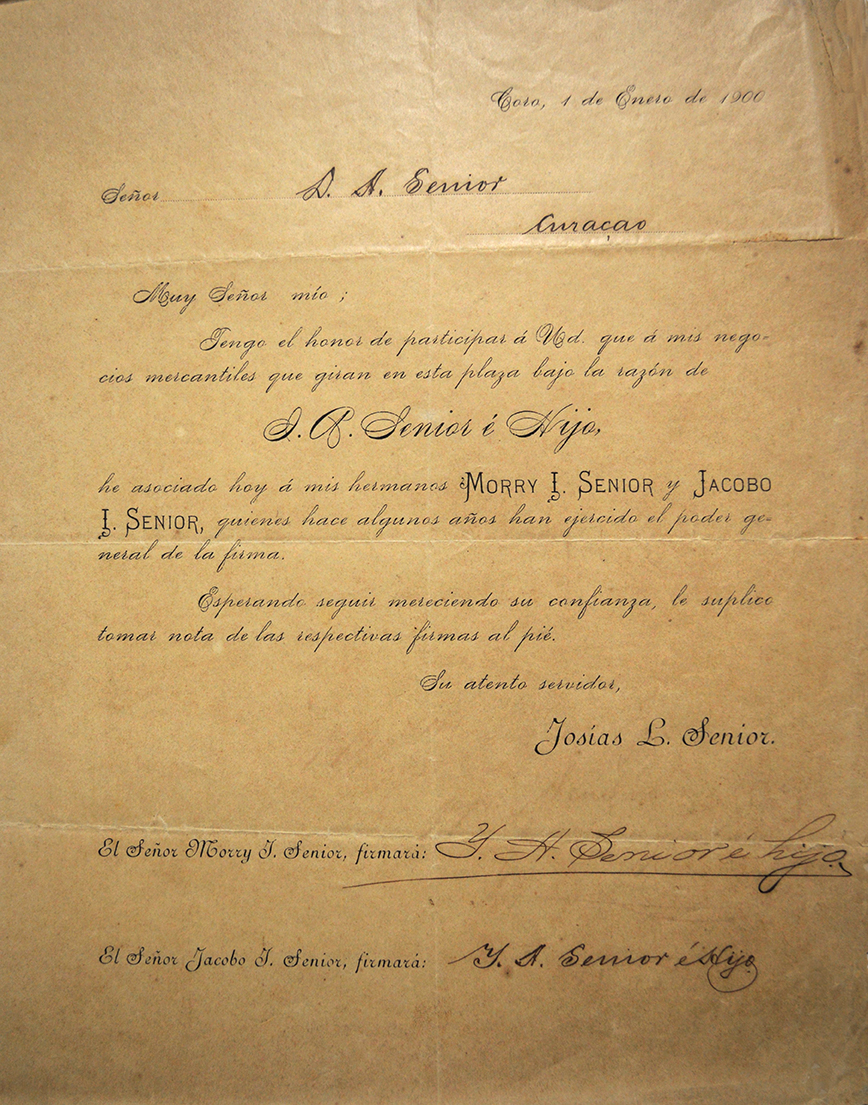 Coro, 1 de Enero de 1900
Señor D. A. Senior
Curaçao
Muy Señor mío ;
Tengo el honor de participar á Ud. que á mis nego-
cios mercantiles que giran en esta plaza bajo la razón de
I. A. Senior é Hijo,
he asociado hoy á mis hermanos MORRY I. SENIOR y JACOBO
I. SENIOR, quienes hace algunos años han ejercido el poder ge-
neral de la firma.
Esperando seguir mereciendo su confianza, le suplico
tomar nota de las respectivas firmas al pié.
Su atento servidor,
Josías L. Senior.
El Señor Morry I. Senior, firmará: Y. A. Senior é hijo.
El Señor Jacobo I. Senior, firmará: Y. A. Senior é Hijo